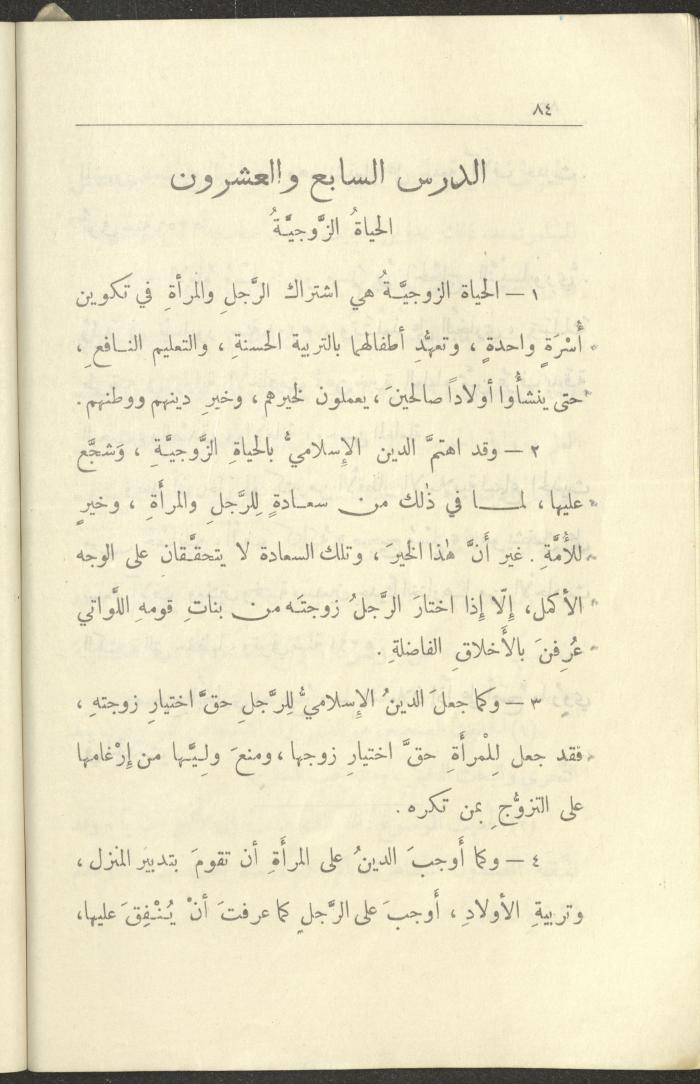 ٨٤
الدرس السابع والعشرون
الحياةُ الزَّوجيَّةُ
١ – الحياة الزوجيَّةُ هي اشتراك الرَّجلِ والمرأةِ في تكوين
أُسْرَةٍ واحدةٍ ، وتعهُّدِ أطفالهما بالتربية الحسنةِ ، والتعليم النافعِ ،
حتى ينشأُوا أولاداً صالحينَ ، يعملون لخيرهم ، وخيرِ دينهم ووطنهم .
٢ – وقد اهتمَّ الدين الإِسلاميُّ بالحياةِ الزَّوجيَّةِ ، وَشجَّع
عليها ، لما في ذٰلك من سعادةٍ لِلرَّجلِ والمرأَةِ ، وخيرٍ
للأُمَّةِ . غير أَنَّ هٰذا الخيرَ ، وتلك السعادة لا يتحقَّقانِ على الوجه
الأكمل ، إِلّا إِذا اختارَ الرَّجلُ زوجتَه من بناتِ قومهِ اللَّواتي
عُرِفنَ بالأَخلاقِ الفاضلةِ .
٣ – وكما جعلَ الدينُ الإِسلاميُّ لِلرَّجلِ حقَّ اختيارِ زوجتهِ ،
فقد جعل لِلْمرأَةِ حقَّ اختيارِ زوجها ، ومنعَ ولِيَّها من إِرْغامها
على التزوُّجِ بمن تكره .
٤ – وكما أَوجبَ الدينُ على المرأَةِ أن تقومَ بتدبير المنزل ،
وتربيةِ الأولادِ ، أَوجبَ على الرَّجلِ كما عرفتَ أنْ يُنْفِقَ عليها ،